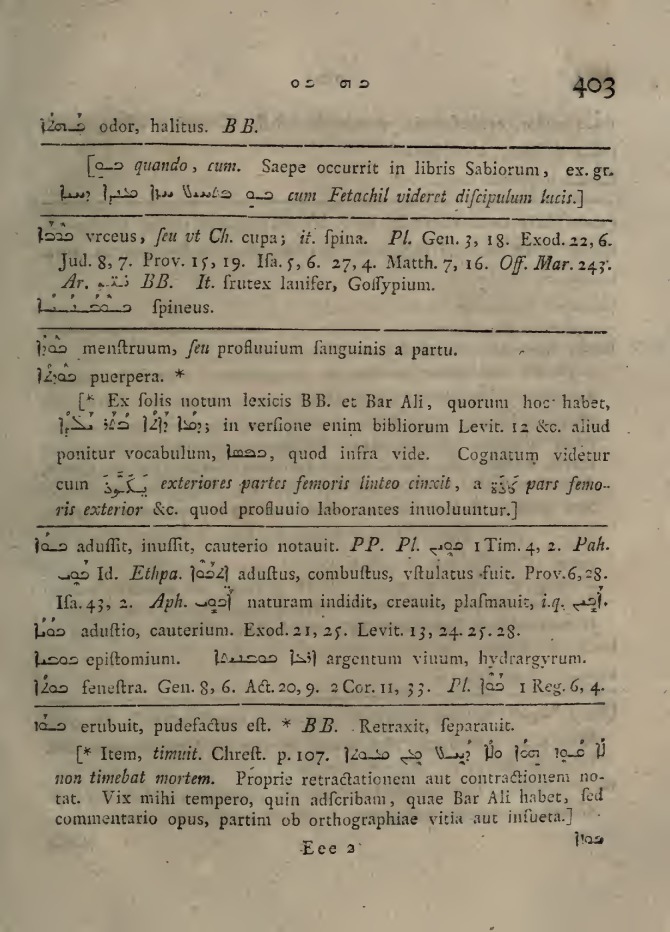 ܟܘ ܟܗ 403
odor, halitus. BB.
[ܟܘ quando, cum. Saepe occurrit in libris Sabiorum, ex. gr.
cum Fetachil videret diſcipulum lucis.]
vrceus, ſeu vt Ch. cupa; it. ſpina. Pl. Gen. 3, 18. Exod. 22, 6.
Jud. 8, 7. Prov. 15, 19. Iſa. 5, 6. 27, 4. Matth. 7, 16. Off. Mar. 243.
Ar. BB. It. frutex lanifer, Goſſypium.
ſpineus.
menſtruum, ſeu profluuium ſanguinis a partu.
puerpera. *
[* Ex ſolis notum lexicis BB. et Bar Ali, quorum hoc habet,
in verſione enim bibliorum Levit. 12 &c. aliud
ponitur vocabulum, quod infra vide. Cognatum videtur
cum exteriores partes femoris linteo cinxit, a pars femo-
ris exterior &c. quod profluuio laborantes inuoluuntur.]
ܟܘܐ aduſſit, inuſſit, cauterio notauit. PP. Pl. 1 Tim. 4, 2. Pah.
Id. Ethpa. aduſtus, combuſtus, vſtulatus fuit. Prov. 6, 28.
Iſa. 43, 2. Aph. naturam indidit, creauit, plaſmauit, i. q.
aduſtio, cauterium. Exod. 21, 25. Levit. 13, 24. 25. 28.
epiſtomium. argentum viuum, hydrargyrum.
ܟܘܬܐ feneſtra. Gen. 8, 6. Act. 20, 9. 2 Cor. 11, 33. Pl. ܟܘܐ 1 Reg. 6, 4.
erubuit, pudefactus eſt. * BB. Retraxit, ſeparauit.
[* Item, timuit. Chreſt. p. 107.
non timebat mortem. Proprie retractationem aut contractionem no-
tat. Vix mihi tempero, quin adſcribam, quae Bar Ali habet, ſed
commentario opus, partim ob orthographiae vitia aut inſueta.]
Eee 2